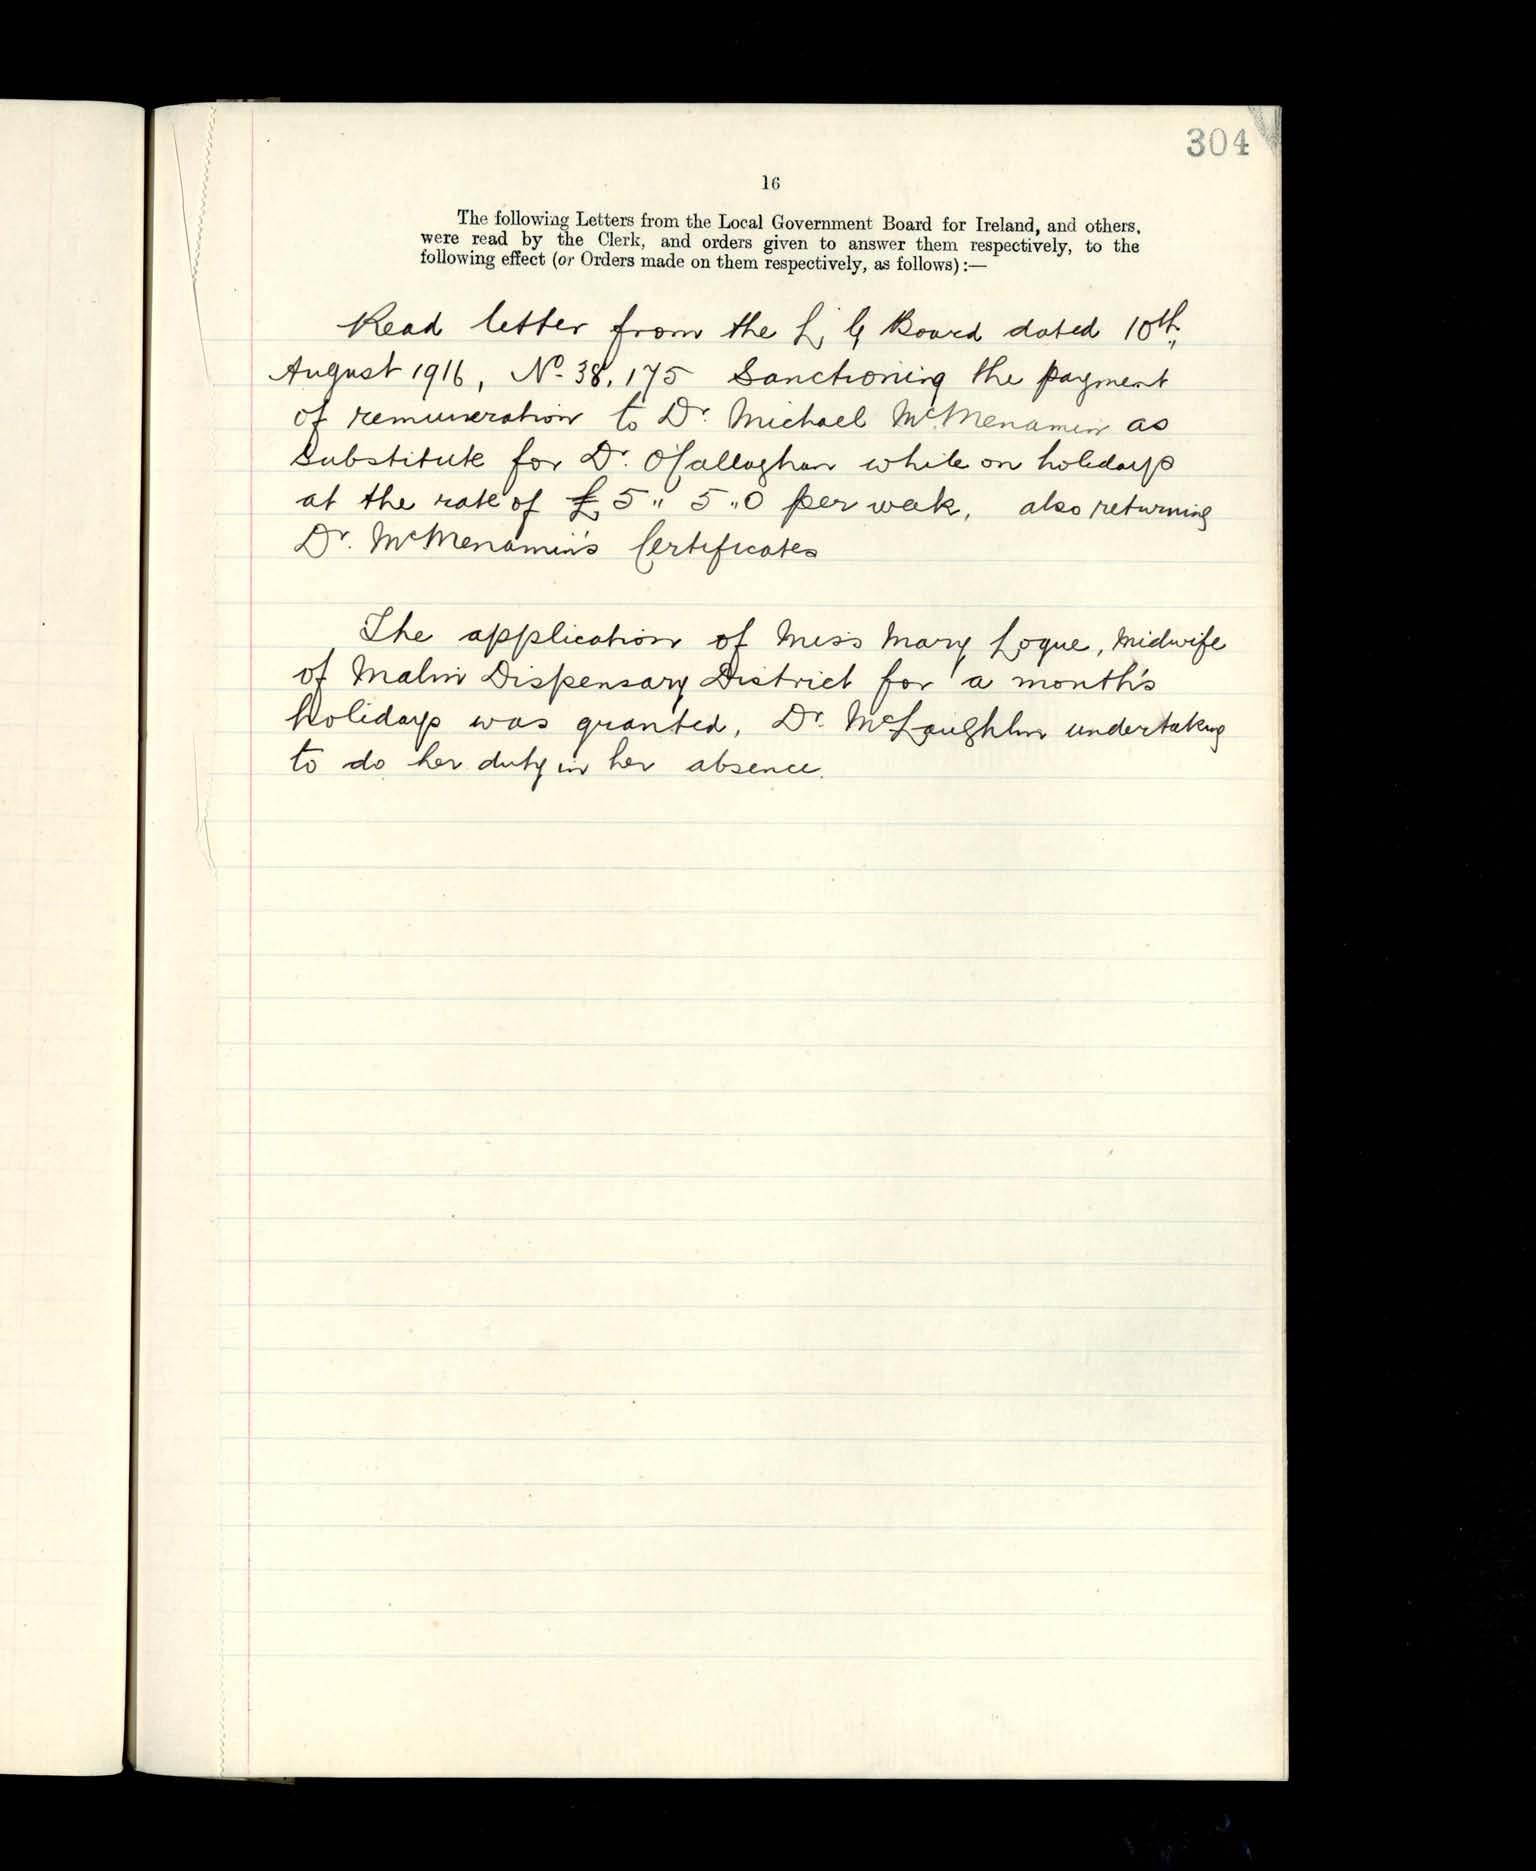 304
16
The following Letters from the Local Government Board for Ireland, and others,
were read by the Clerk, and orders given to answer them respectively, to the
following effect (or Orders made on them respectively, as follows):—
Read letter from the L G Board dated 10th
August 1916, No. 38,175 Sanctioning the payment
of remuneration to Dr. Michael McMenamin as
Substitute for Dr. O'Callaghan while on holidays
at the rate of £5" 5"0 per week, also returning
Dr. McMenamin's Certificates
The application of Miss Mary Logue, Midwife
of Malin Dispensary District for a month's
holidays was granted, Dr. McLaughlin undertaking
to do her duty in her absence.